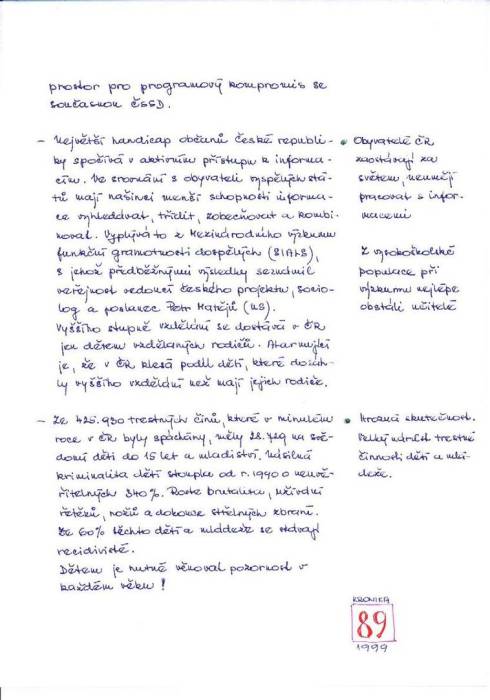 prostor pro programový kompromis se
současnou ČSSD.
- Největší handicap občanů České republi-
ky spočívá v aktivním přístupu k informa-
cím. Ve srovnání s obyvateli vyspělých stá-
tů mají našinci menší schopnosti informa-
ce vyhledávat, třídit, zobecňovat a kombi-
novat. Vyplývá to z Mezinárodního výzkumu
funkční gramotnosti dospělých (SIALS),
s jehož předběžnými výsledky seznámil
veřejnost vedoucí českého projektu, socio-
log a poslanec Petr Matějů (US).
Vyššího stupně vzdělání se dostává v ČR
jen dětem vzdělaných rodičů. Alarmující
je, že v ČR klesá podíl dětí, které dosáh-
ly vyššího vzdělání než mají jejich rodiče.
• Obyvatelé ČR
zaostávají za
světem, neumějí
pracovat s infor-
macemi
Z vysokoškolské
populace při
výzkumu nejlépe
obstáli učitelé
- Ze 425.930 trestných činů, které v minulém
roce v ČR byly spáchány, měly 28.729 na svě-
domí děti do 15 let a mladiství. Násilná
kriminalita dětí stoupla od r. 1990 o neuvě-
řitelných 340%. Roste brutalita, užívání
řetězů, nožů a dokonce střelných zbraní.
Ze 60% těchto dětí a mládeže se stávají
recidivisté.
Dětem je nutné věnovat pozornost v
každém věku!
• Hrozná skutečnost.
Velký nárůst trestné
činnosti dětí a mlá-
deže.
KRONIKA
89
1999